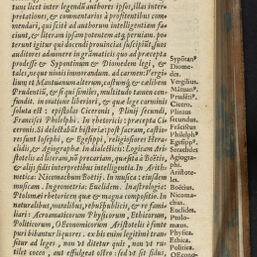 tunc licet inter legendū authores ipsos, illas inter-
pretationes, & commentarios à profitentibus come-
mendari, qui scilicet ad authorum intelligentiam fa
ciunt, & literam ipsam potent atq; peruiam. po-
terunt igitur qui docendi prouincias suscipiūt, suos
auditores admonere in grāmaticis quo ad præcepta
prodesse & Sypontinum & Diomedem legi, &
tales, neque nimis immorandum. ad carmen: Vergi
lium & Mantuanum alterum, castum & cælibem
Prudentiū, & si qui similes, multitudo tamen con-
fundit. in oratione liberiori, & quæ lege carminis
soluta est: epistolas Ciceronis, Plinij secundi,
Francisci Philelphi. In rhetoricis: præcepta Ci
ceronis. Si delectabit historia: post sacram, castio-
res sunt Iosephi, & Egesippi, religiosiores Hera-
clidis, & Agiographa. in dialecticis: Logicam Ari-
stotelis ad literam, nō precariam, quæ sita à Boëtio,
& alijs fidis interpretibus intelligentia. In Arith-
metica: Nicomachum Boëtij. In musica: eiusdem
musicam. In geometria: Euclidem. In astrologia:
Ptolomæi rhetoricen quæ & magna compositio. In
naturalibus, moralibus, rebuspublicis, & re famili-
ari: Acroamaticorum Physicorum, Ethicorum,
Politicorum, OEconomicorum Aristotelis è fonte
puri bibantur liquores. ex his enim legitimi tran-
situr ad leges, non vt ditetur quis, non vt ru-
tilet cocco, aut effulgeat ostro: sed vt sit fidus,
Sypōtan9
Diome-
des.
Vergilius.
Mātuan9
Prudēti9.
Cicero.
Plinius
secundus.
Frāciscus
Philelph9
Egesipp9
Heraclides
Agiogra-
phi.
Aristote-
les.
Boëtius.
Nicoma-
chus.
Euclides.
Ptolo-
mæus.
Physica
Ethica.
Politica.
OEcono-